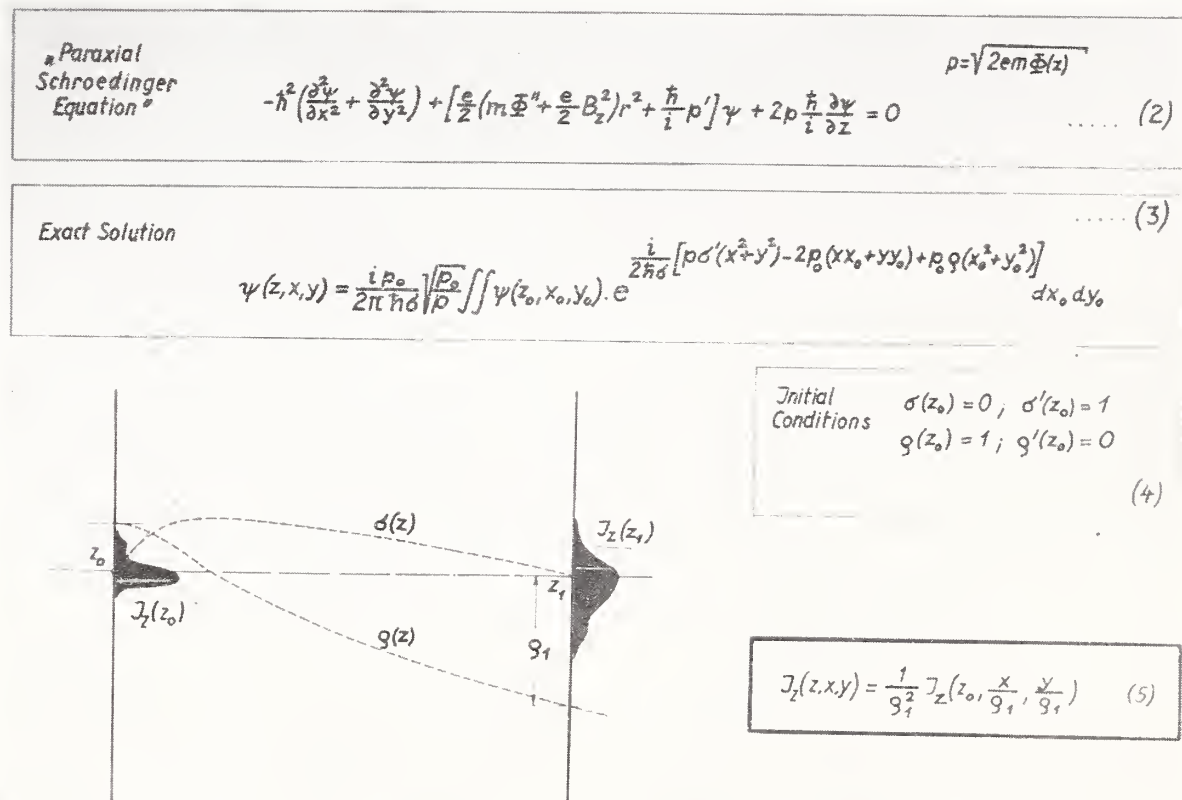 „Paraxial
Schroedinger
Equation"
p=√2emΦ(z)
-ħ²(∂²ψ/∂x² + ∂²ψ/∂y²) + [e/2(mΦ″ + e/2 B_z²)r² + ħ/i p′]ψ + 2p ħ/i ∂ψ/∂z = 0 ..... (2)
..... (3)
Exact Solution
ψ(z,x,y) = i p₀/2πħσ √p₀/p ∬ ψ(z₀,x₀,y₀). e^{i/2ħσ[pσ′(x²+y²)-2p₀(xx₀+yy₀)+p₀ρ(x₀²+y₀²)]} dx₀ dy₀
Initial
Conditions
σ(z₀) = 0 ; σ′(z₀) = 1
ρ(z₀) = 1 ; ρ′(z₀) = 0
(4)
σ(z)
J_z(z₁)
z₀
z₁
J_z(z₀)
ρ(z)
ρ₁
J_z(z,x,y) = 1/ρ₁² J_z(z₀, x/ρ₁, y/ρ₁) (5)